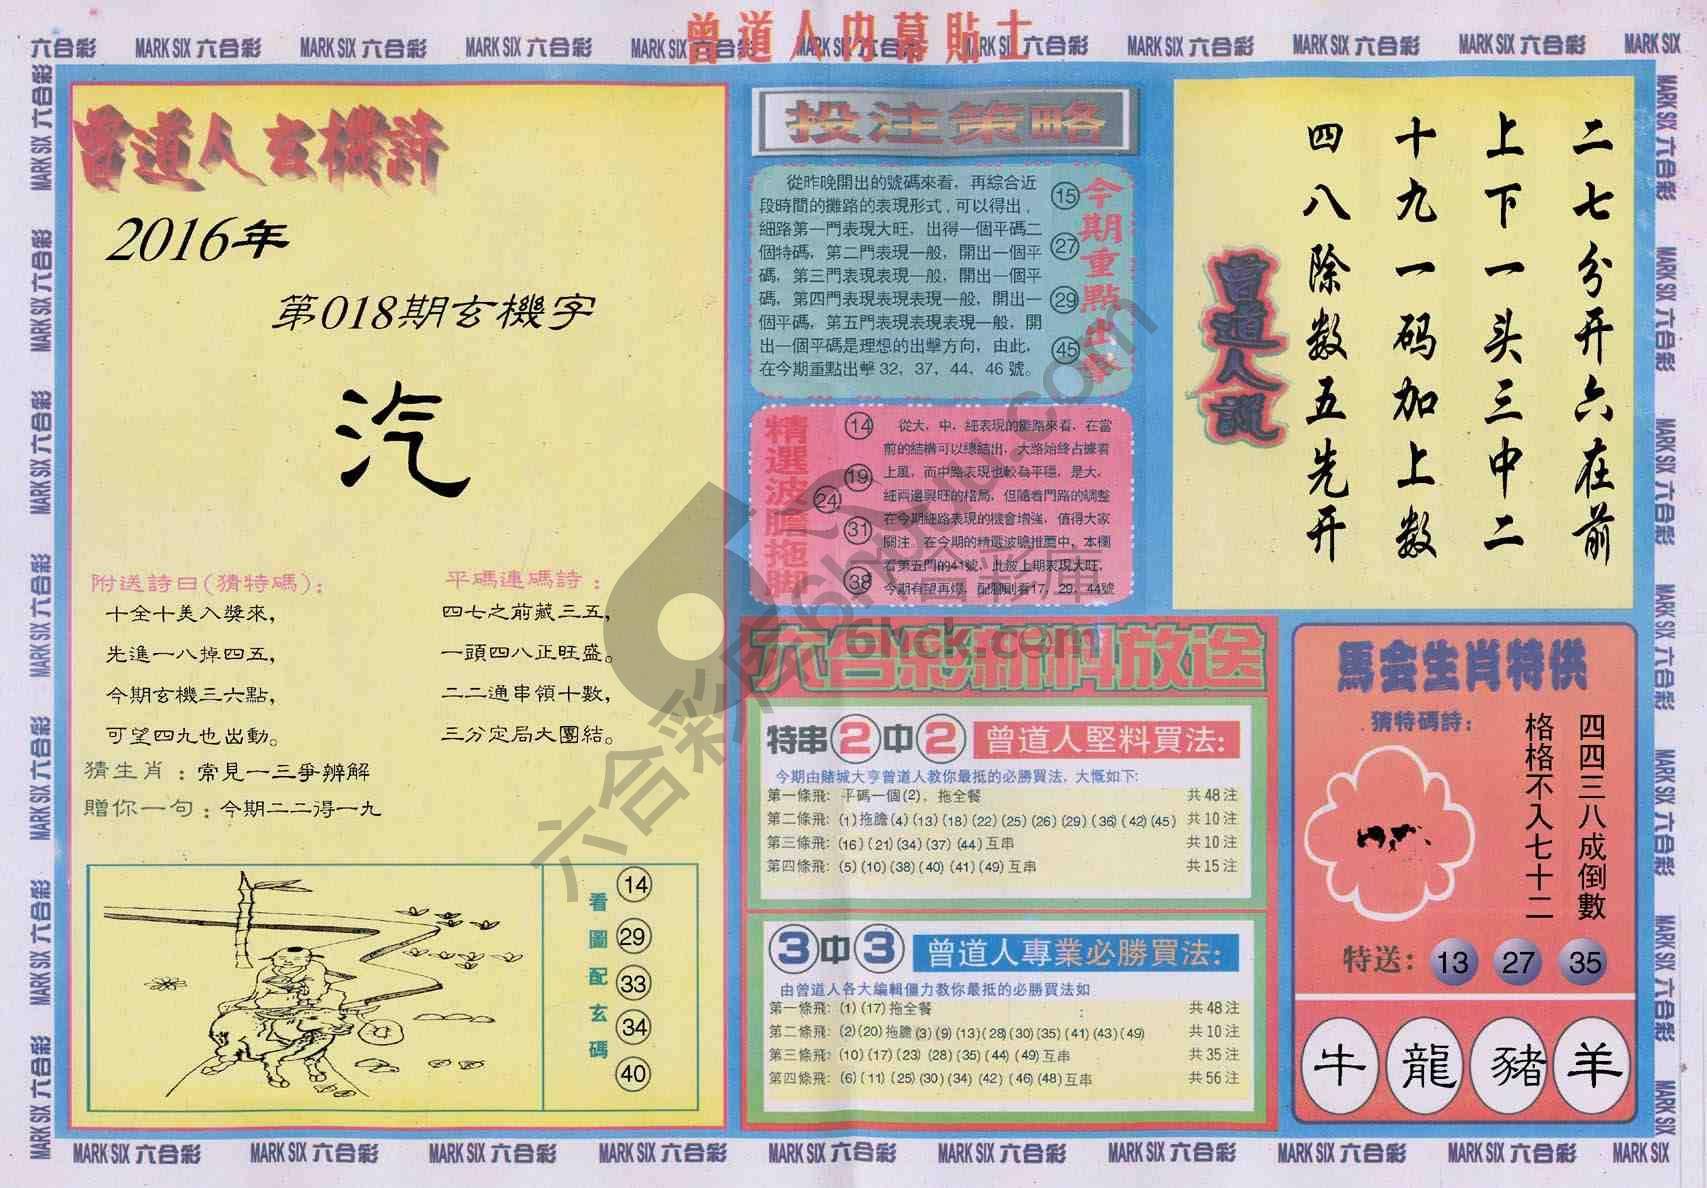 曾道人內幕貼士
六合彩 MARK SIX 六合彩 MARK SIX 六合彩 MARK SIX 六合彩 MARK SIX 六合彩 MARK SIX 六合彩 MARK SIX 六合彩 MARK SIX 六合彩 MARK SIX 六合彩 MARK SIX 六合彩 MARK SIX
曾道人玄機詩
2016年
第018期玄機字
汽
附送詩曰(猜特碼):
十全十美入獎來,
先進一八掉四五,
今期玄機三六點,
可望四九也出動。
平碼連碼詩:
四七之前藏三五,
一頭四八正旺盛。
二二通串領十數,
三分定局大團結。
猜生肖:常見一三爭辨解
贈你一句:今期二二得一九
看圖配玄碼
14
29
33
34
40
投注策略
從昨晚開出的號碼來看,再綜合近
段時間的攤路的表現形式,可以得出,
細路第一門表現大旺,出得一個平碼二
個特碼,第二門表現一般,開出一個平
碼,第三門表現表現一般,開出一個平
碼,第四門表現表現表現一般,開出一
個平碼,第五門表現表現表現一般,開
出一個平碼是理想的出擊方向,由此,
在今期重點出擊 32, 37, 44, 46 號。
今期重點出擊
15
27
29
45
精選波膽拖脚
14
19
24
31
38
從大,中,細表現的攤路來看,在當
前的結構可以總結出,大路始終占據着
上風,而中路表現也較為平穩,是大,
細兩邊興旺的格局,但隨着門路的調整
在今期細路表現的機會增強,值得大家
關注。在今期的精選波膽推薦中,本欄
看第五門的41號,此波上期表現大旺,
今期有望再爆,配腳則看17, 29, 44號
曾道人説
二七分开六在前
上下一头三中二
十九一码加上数
四八除数五先开
六合彩新料放送
特串2中2 曾道人堅料買法:
今期由賭城大亨曾道人教你最抵的必勝買法,大慨如下:
第一條飛: 平碼一個(2), 拖全餐 共48注
第二條飛: (1)拖膽(4)(13)(18)(22)(25)(26)(29)(36)(42)(45) 共10注
第三條飛: (16)(21)(34)(37)(44)互串 共10注
第四條飛: (5)(10)(38)(40)(41)(49)互串 共15注
3中3 曾道人專業必勝買法:
由曾道人各大編輯僵力教你最抵的必勝買法如
第一條飛: (1)(17)拖全餐 共48注
第二條飛: (2)(20)拖膽(3)(9)(13)(28)(30)(35)(41)(43)(49) 共10注
第三條飛: (10)(17)(23)(28)(35)(44)(49)互串 共35注
第四條飛: (6)(11)(25)(30)(34)(42)(46)(48)互串 共56注
馬会生肖特供
猜特碼詩:
四四三八成倒數
格格不入七十二
特送: 13 27 35
牛 龍 豬 羊
六合彩庫 6hck.com
MARK SIX 六合彩 MARK SIX 六合彩 MARK SIX 六合彩 MARK SIX 六合彩 MARK SIX 六合彩 MARK SIX 六合彩 MARK SIX 六合彩 MARK SIX 六合彩 MARK SIX 六合彩 MARK SIX